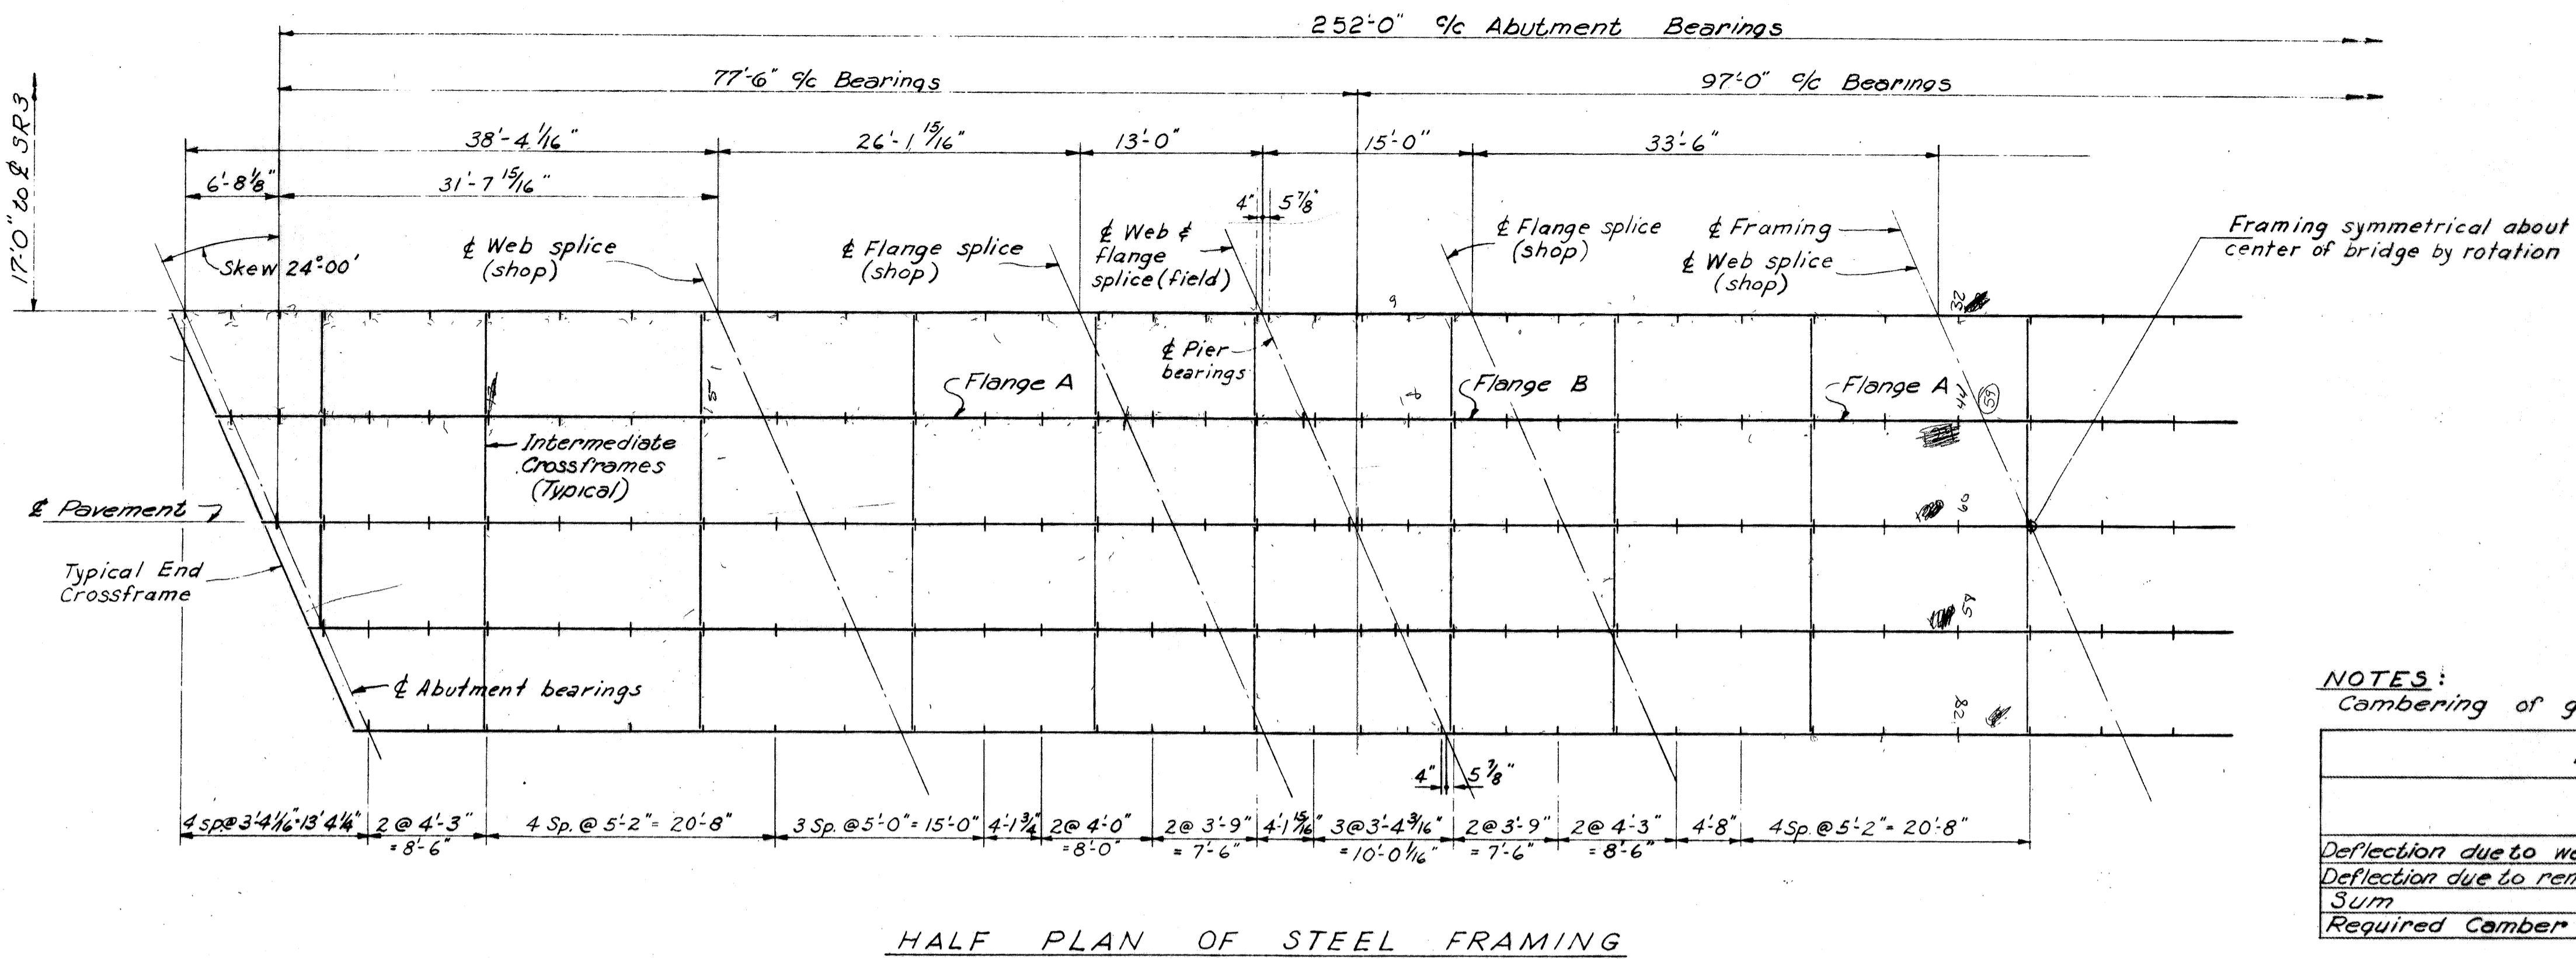 252'-0" c/c Abutment Bearings
77'-6" c/c Bearings
97'-0" c/c Bearings
17'-0" to ℄ SR3
38'-4 1/16"
26'-1 15/16"
13'-0"
15'-0"
33'-6"
6'-8 1/8"
31'-7 15/16"
4"
5 7/8"
Skew 24°00'
℄ Web splice
(shop)
℄ Flange splice
(shop)
℄ Web &
flange
splice (field)
℄ Flange splice
(shop)
℄ Framing
℄ Web splice
(shop)
Framing symmetrical about
center of bridge by rotation
9
32
℄ Pier
bearings
Flange A
Flange B
Flange A
44
59
Intermediate
Crossframes
(Typical)
℄ Pavement
60
Typical End
Crossframe
59
℄ Abutment bearings
28
4"
5 7/8"
4 sp.@3'-4 1/16"=13'4 1/4"
2 @ 4'-3"
= 8'-6"
4 Sp. @ 5'-2" = 20'-8"
3 Sp. @ 5'-0" = 15'-0"
4'-1 3/4"
2@ 4'-0"
=8'-0"
2@ 3'-9"
= 7'-6"
4'-1 15/16"
3@3'-4 3/16"
=10'-0 1/16"
2@3'-9"
= 7'-6"
2@ 4'-3"
= 8'-6"
4'-8"
4Sp. @ 5'-2" = 20'-8"
NOTES:
Cambering of g
Deflection due to we
Deflection due to rem
Sum
Required Camber
HALF PLAN OF STEEL FRAMING